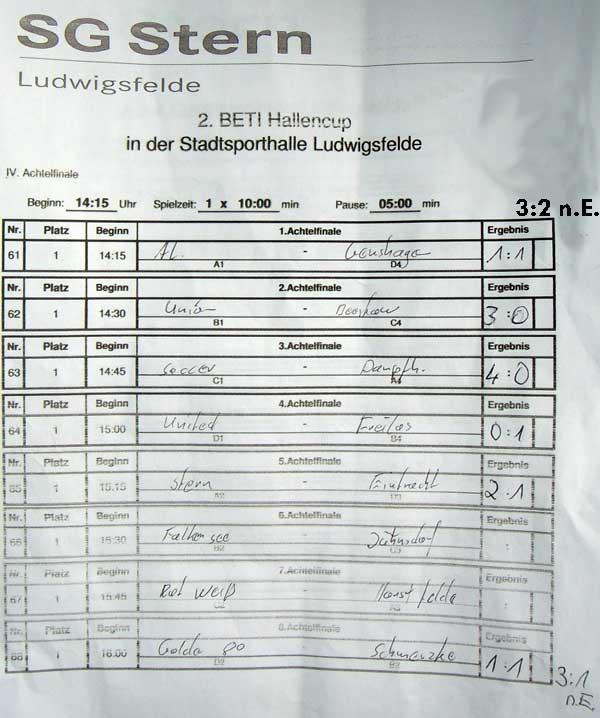 SG Stern
Ludwigsfelde
2. BETI Hallencup
in der Stadtsporthalle Ludwigsfelde
IV. Achtelfinale
Beginn: 14:15 Uhr Spielzeit: 1 x 10:00 min Pause: 05:00 min
3:2 n.E.
Nr. Platz Beginn 1.Achtelfinale Ergebnis
61 1 14:15 AL. - Genshagen 1:1
A1 D4
Nr. Platz Beginn 2.Achtelfinale Ergebnis
62 1 14:30 Union - Beeskow 3:0
B1 C4
Nr. Platz Beginn 3.Achtelfinale Ergebnis
63 1 14:45 Soccer - Dampfh. 4:0
C1 A4
Nr. Platz Beginn 4.Achtelfinale Ergebnis
64 1 15:00 United - Freilos 0:1
D1 B4
Nr. Platz Beginn 5.Achtelfinale Ergebnis
65 1 15:15 Stern - Eintracht 2:1
A2
Nr. Platz Beginn 6.Achtelfinale Ergebnis
66 1 15:30 Falkensee - Jühnsdorf :
B2 C3
Nr. Platz Beginn 7.Achtelfinale Ergebnis
67 1 15:45 Rot Weiß - :
C2 A3
Nr. Platz Beginn 8.Achtelfinale Ergebnis
68 1 16:00 Golda 80 - Schmerzke 1:1
D2 B3
3:1
n.E.